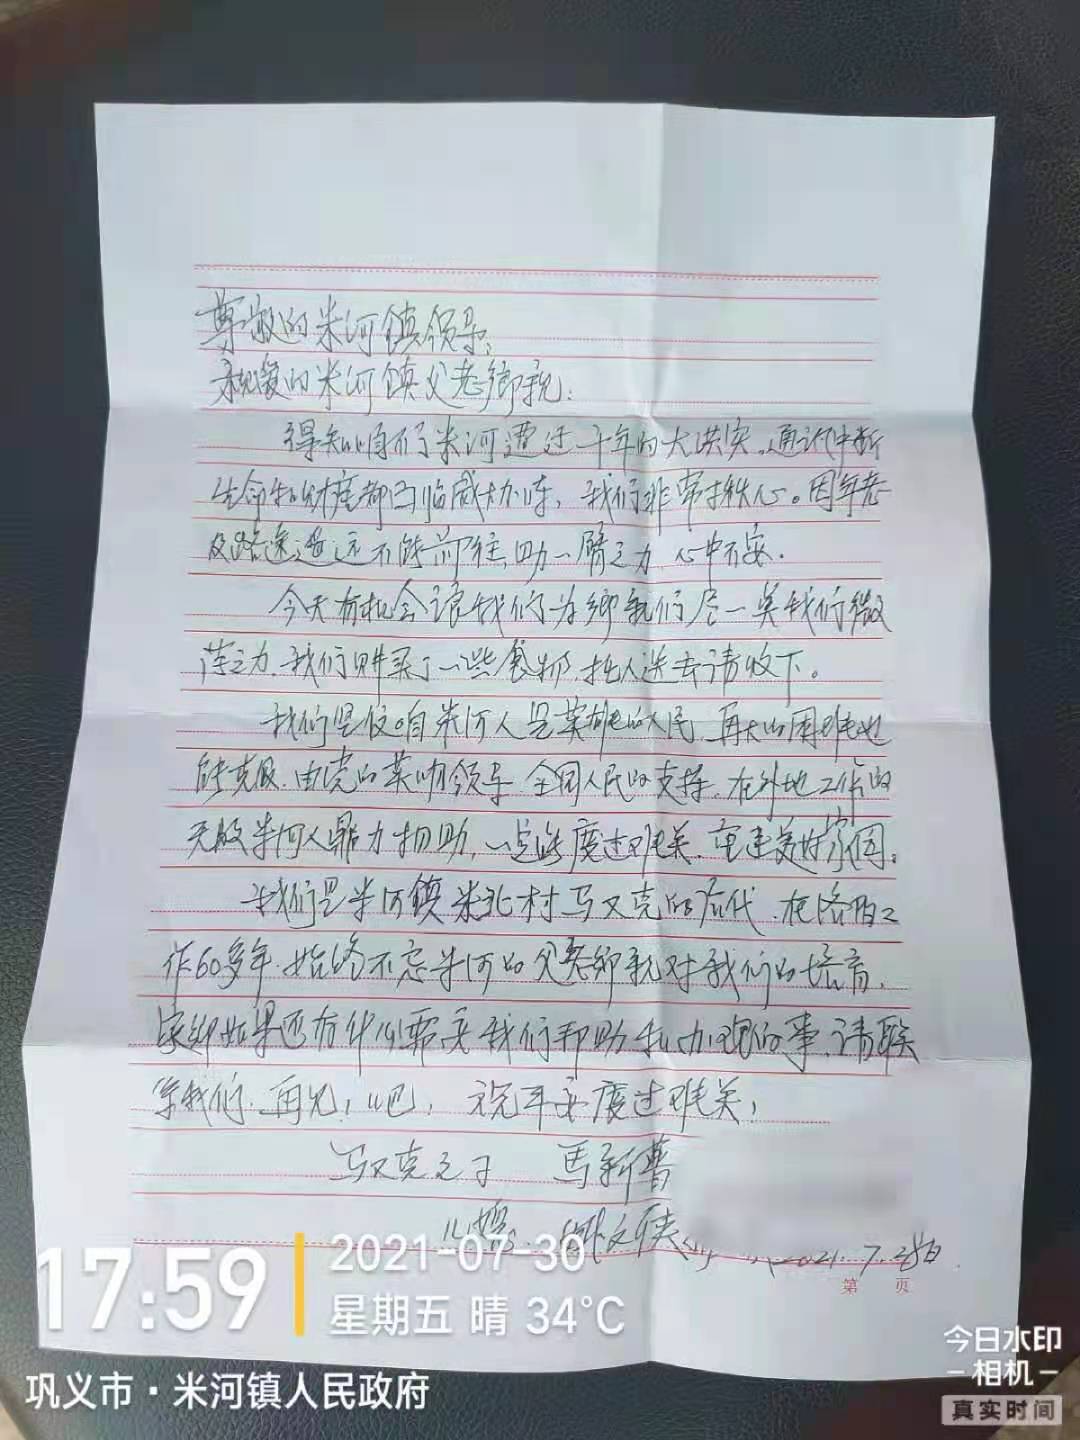 尊敬的米河镇领导:
亲爱的米河镇父老鄉親:
得知咱们米河遭过千年的大洪灾,通讯中断
生命和财産都面临威胁时,我们非常揪心。因年老
及路途遥远不能前往助一臂之力,心中不安.
今天有机会让我们为鄉親们尽一点我们微
薄之力.我们购买了一些食物,托人送去请收下。
我们坚信咱米河人是英雄的人民,再大的困难也
能克服.由党的英明领导,全国人民的支持,在外地工作的
米河人鼎力相助,一定能度过难关,重建美好家园。
我们是米河镇米北村马又克的后代,在洛阳工
作60多年.始终不忘米河的父老鄉親对我们的培育,
家鄉如果还有什么需要我们帮助和办理的事,请联
系我们.再见!吧,祝平安度过难关!
马又克之子 馬新普
儿媳: 文侠 2021.7.28日
第 页
17:59
2021-07-30
星期五 晴 34°C
巩义市·米河镇人民政府
今日水印
相机
真实时间